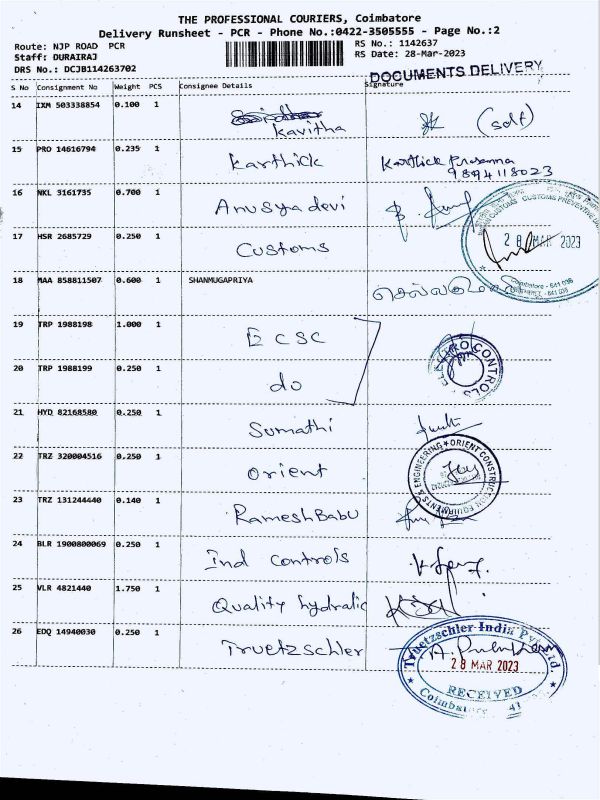 THE PROFESSIONAL COURIERS, Coimbatore
Delivery Runsheet - PCR - Phone No.:0422-3505555 - Page No.:2
Route: NJP ROAD PCR
Staff: DURAIRAJ
DRS No.: DCJB114263702
RS No.: 1142637
RS Date: 28-Mar-2023
DOCUMENTS DELIVERY
S No Consignment No Weight PCS Consignee Details Signature
14 IXM 503338854 0.100 1 Kavitha (self)
15 PRO 14616794 0.235 1 Karthick Karthick Prasanna
9894118023
16 NKL 3161735 0.700 1 Anusya devi
17 HSR 2685729 0.250 1 Customs
CUSTOMS PREVENTIVE
28 MAR 2023
Coimbatore - 641 018
18 MAA 858811507 0.600 1 SHANMUGAPRIYA
19 TRP 1988198 1.000 1 E CSC
20 TRP 1988199 0.250 1 do
ELECTRO CONTROLS
21 HYD 82168580 0.250 1 Sumathi
22 TRZ 320004516 0.250 1 Orient
ORIENT CONSTRUCTION EQUIPMENTS & ENGINEERING
23 TRZ 131244440 0.140 1 Ramesh Babu
24 BLR 1900800069 0.250 1 Ind controls
25 VLR 4821440 1.750 1 Quality hydralic
26 EDQ 14940030 0.250 1 Truetzschler
Truetzschler India Pvt. Ltd.
28 MAR 2023
RECEIVED